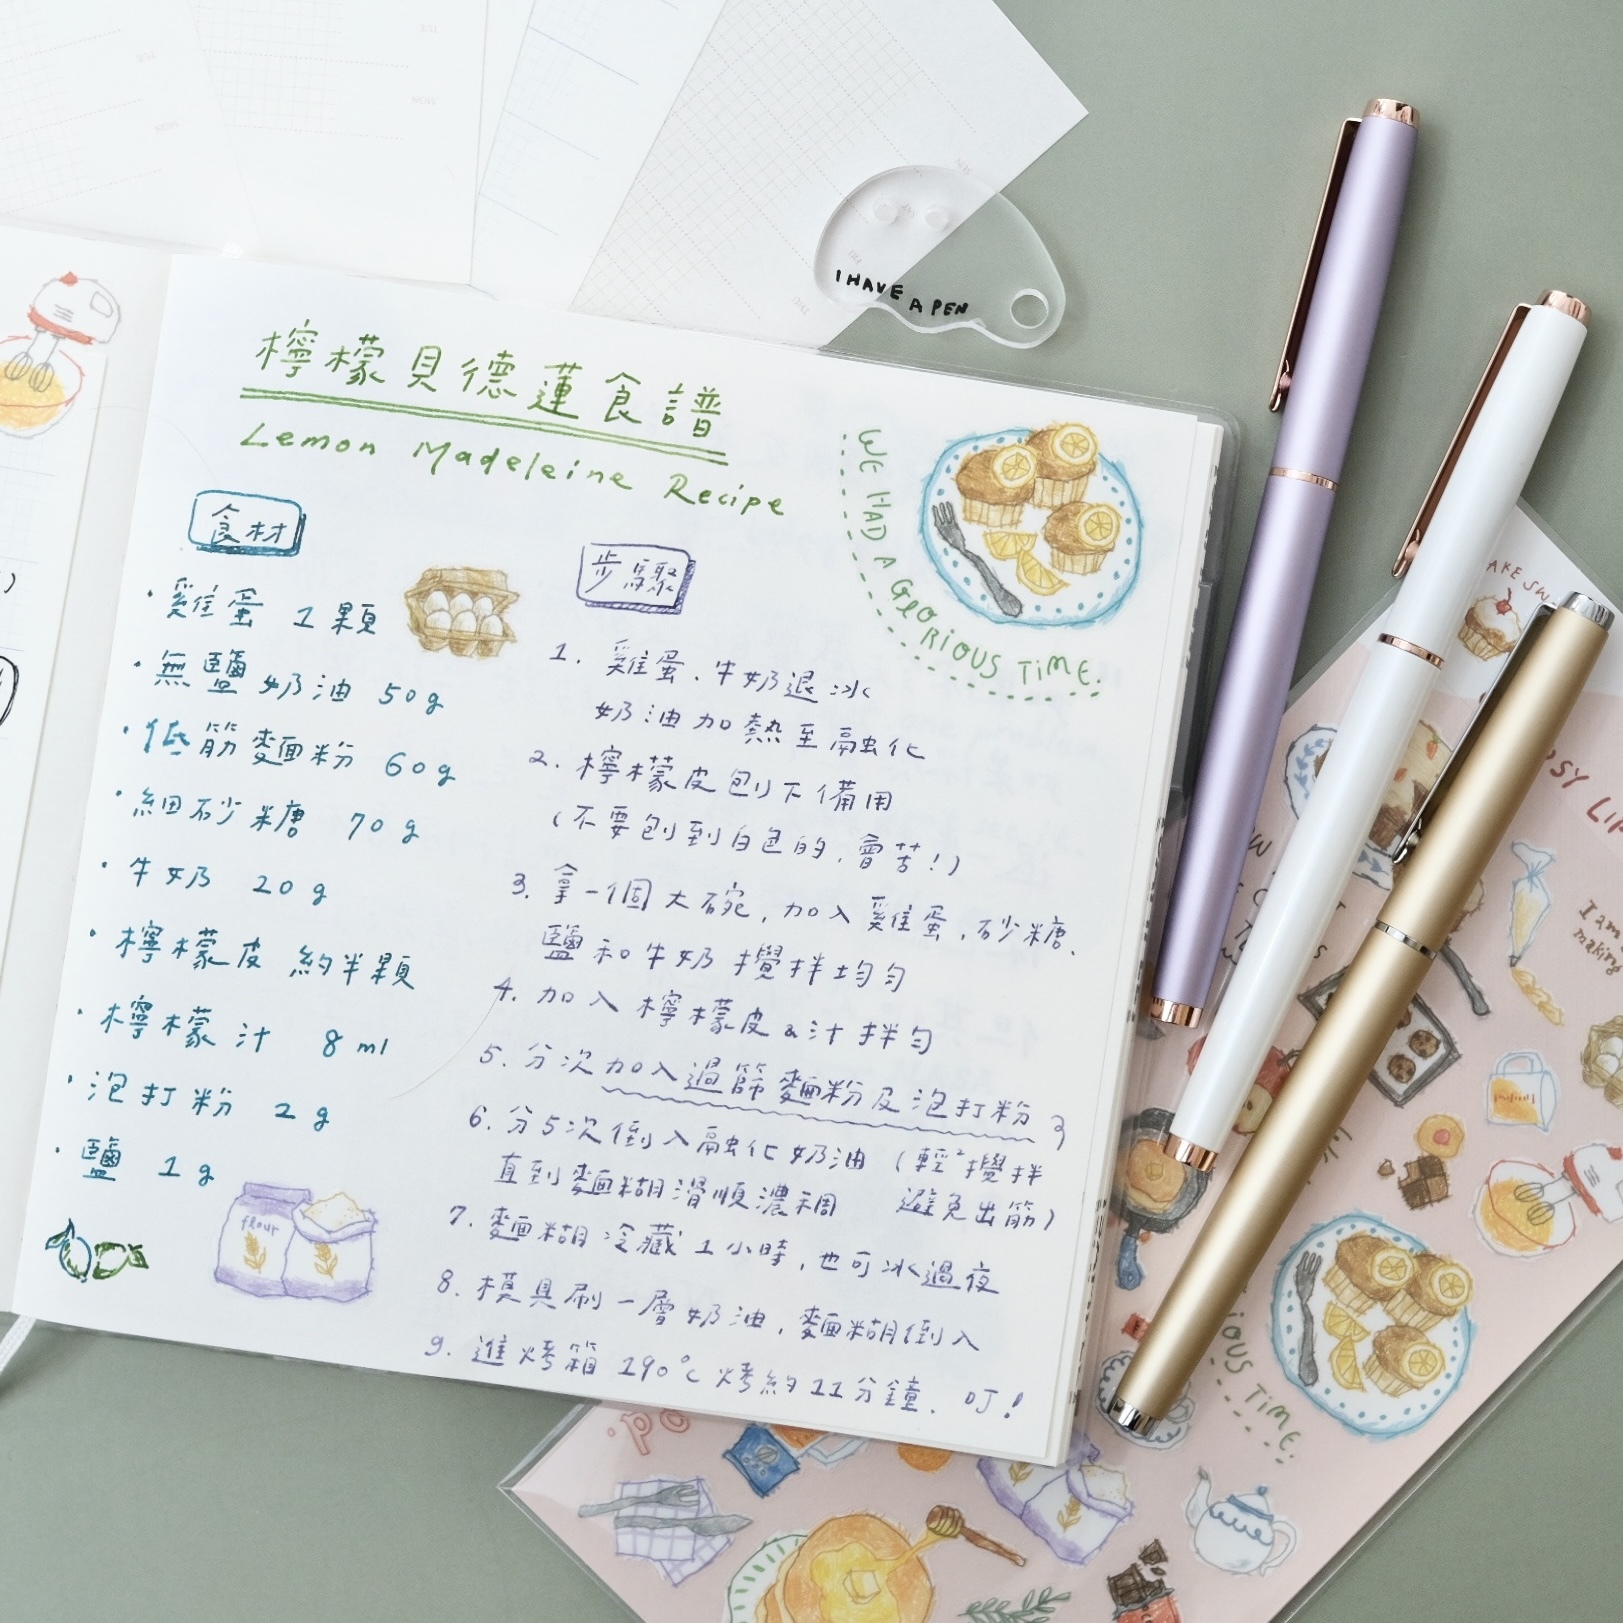 I HAVE A PEN
檸檬貝德蓮食譜
Lemon Madeleine Recipe
WE HAD A GLORIOUS TIME.
食材
・雞蛋 1顆
・無鹽奶油 50g
・低筋麵粉 60g
・細砂糖 70g
・牛奶 20g
・檸檬皮 約半顆
・檸檬汁 8ml
・泡打粉 2g
・鹽 1g
flour
步驟
1. 雞蛋、牛奶退冰
奶油加熱至融化
2. 檸檬皮刨下備用
(不要刨到白色的,會苦!)
3. 拿一個大碗,加入雞蛋、砂糖、
鹽和牛奶攪拌均勻
4. 加入檸檬皮&汁拌勻
5. 分次加入過篩麵粉及泡打粉
6. 分5次倒入融化奶油 (輕²攪拌
直到麵糊滑順濃稠 避免出筋)
7. 麵糊冷藏1小時,也可冰過夜
8. 模具刷一層奶油,麵糊倒入
9. 進烤箱190°C烤約11分鐘、叮!
I am
making
TIME.